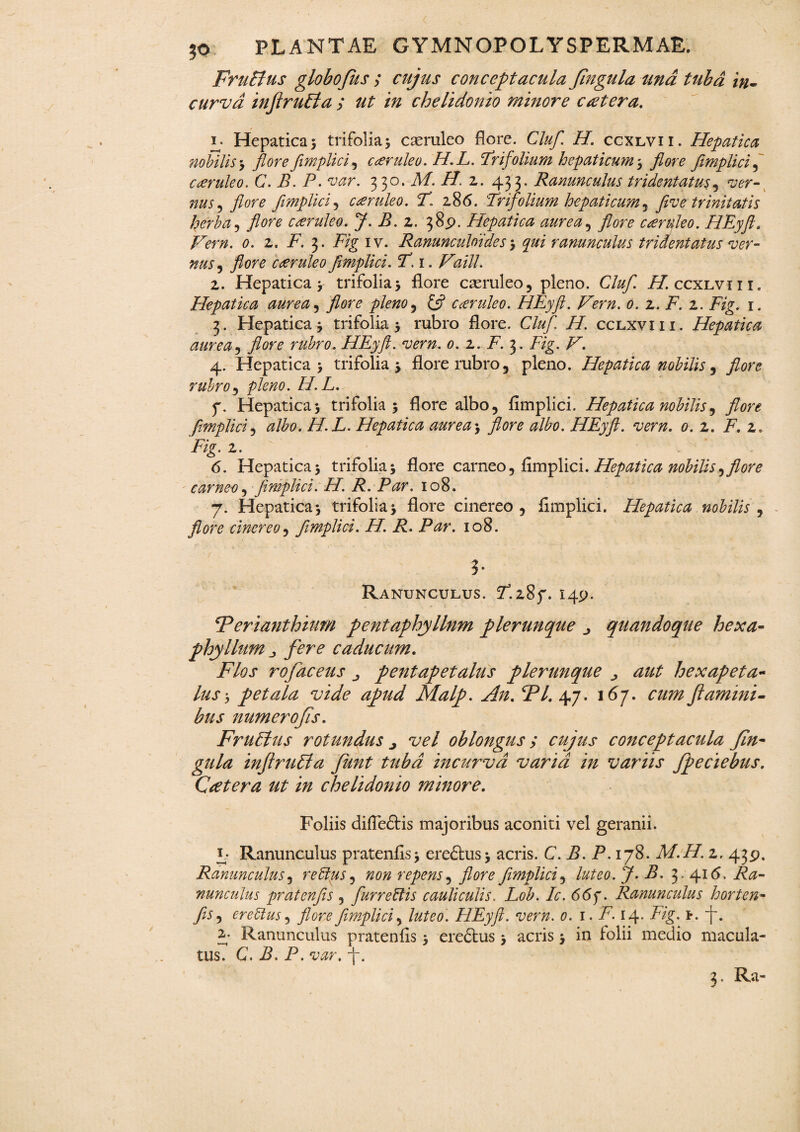 30 PLANTAE GYMNOPOLYSPERMAE.
Fructus globoſus ; cujus conceptacula ſingula unâ tubâ in-
curvâ inſtructa ; ut in chelidonio minore cætera.
1. Hepatica ; trifolia ; cæruleo flore. Cluſ. H. CCXLVII. Hepatica
nobilis ; flore ſimplici, cæruleo. H. L. Trifolium hepaticum ; flore ſimplici,
cæruleo. C. B. P. var. 330. M. H. 2. 433. Ranunculus tridentatus, ver-
nus, flore ſimplici, cæruleo. T. 286. Trifolium hepaticum, ſive trinitatis
herba, flore cæruleo. J. B. 2. 389. Hepatica aurea, flore cæruleo. HEyſt.
Vern. o. 2. F. 3. Fig IV. Ranunculoides ; qui ranunculus tridentatus ver-
nus, flore cæruleo ſimplici. T. 1. Vaill.
2. Hepatica ; trifolia ; flore cæruleo, pleno. Cluſ. H. CCXLVIII.
Hepatica aurea, flore pleno, & cæruleo. HEyſt. Vern. o. 2. F. 2. Fig. 1.
3. Hepatica ; trifolia ; rubro flore. Cluſ. H. CCLXVIII. Hepatica
aurea, flore rubro. HEyſt. vern. o. 2. F. 3. Fig. V.
4. Hepatica ; trifolia ; flore rubro, pleno. Hepatica nobilis, flore
rubro, pleno. H. L.
5. Hepatica ; trifolia ; flore albo, ſimplici. Hepatica nobilis, flore
ſimplici, albo. H. L. Hepatica aurea ; flore albo. HEyſt. vern. o. 2. F. 2.
Fig. 2.
6. Hepatica ; trifolia ; flore carneo, ſimplici. Hepatica nobilis, flore
carneo, ſimplici. H. R. Par. 108.
7. Hepatica ; trifolia ; flore cinereo, ſimplici. Hepatica nobilis,
flore cinereo, ſimplici. H. R. Par. 108.
3.
RANUNCULUS. T. 285. 149.
Perianthium pentaphyllnm plerunque, quandoque hexa-
phyllum, fere caducum.
Flos roſaceus, pentapetalus plerunque, aut hexapeta-
lus ; petala vide apud Malp. An. Pl. 47. 167. cum ſtamini-
bus numeroſis.
Fructus rotundus, vel oblongus ; cujus conceptacula ſin-
gula inſtructa ſunt tubâ incurvâ variâ in variis ſpeciebus.
Cætera ut in chelidonio minore.
Foliis diſſectis majoribus aconiti vel geranii.
1. Ranunculus pratenſis ; erectus ; acris. C. B. P. 178. M. H. 2. 439.
Ranunculus, rectus, non repens, flore ſimplici, luteo. J. B. 3. 416. Ra-
nunculus pratenſis, ſurrectis cauliculis. Lob. Ic. 665. Ranunculus horten-
ſis, erectus, flore ſimplici, luteo. HEyſt. vern. o. 1. F. 14. Fig. 1. †.
2. Ranunculus pratenſis ; erectus ; acris ; in folii medio macula-
tus. C. B. P. var. †.
3. Ra-